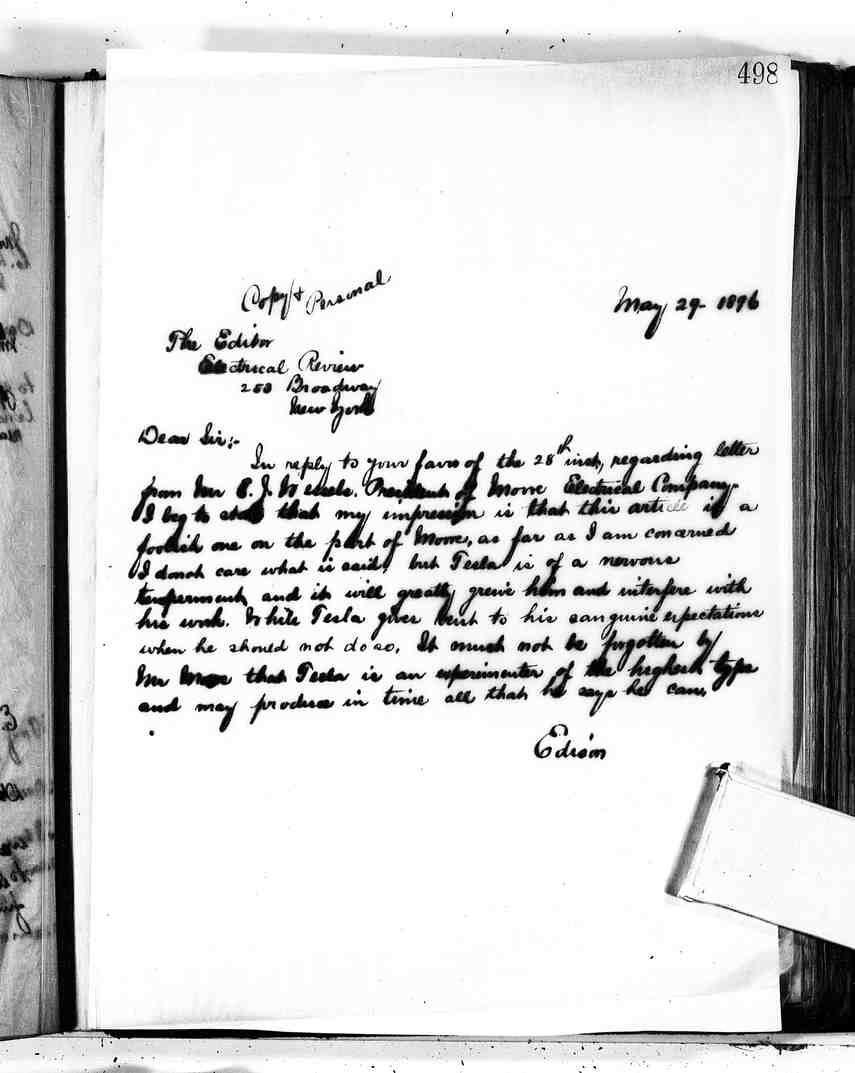 498
Copy & Personal
May 29 - 1896
The Editor
Electrical Review
253 Broadway
New York
Dear Sir;-
In reply to your favor of the 28th inst, regarding letter
from Mr P. J. President of Moore Electrical Company.
I beg to state that my impression is that this article is a
foolish one on the part of Moore, as far as I am concerned
I do not care what is said, but Tesla is of a nervous
temperment and it will greatly greive him and interfere with
his work. While Tesla gives vent to his sanguine expectations
when he should not do so, It must not be forgotten by
Mr Moore that Tesla is an experimenter of the highest type
and may produce in time all that he says he can.
Edison